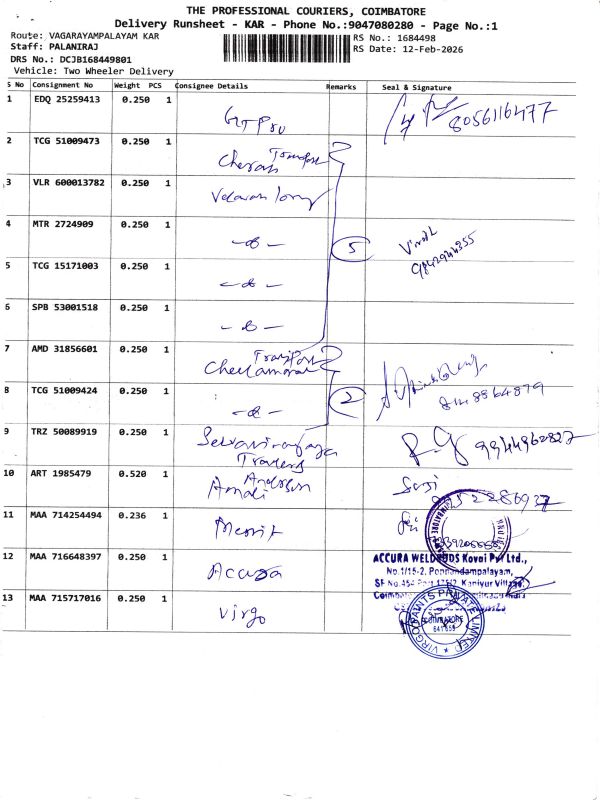 THE PROFESSIONAL COURIERS, COIMBATORE
Delivery Runsheet - KAR - Phone No.:9047080280 - Page No.:1
Route: VAGARAYAMPALAYAM KAR
RS No.: 1684498
Staff: PALANIRAJ
RS Date: 12-Feb-2026
DRS No.: DCJB168449801
Vehicle: Two Wheeler Delivery
S No Consignment No Weight PCS Consignee Details Remarks Seal & Signature
1 EDQ 25259413 0.250 1 8056116477
2 TCG 51009473 0.250 1 Cheran Transport
3 VLR 600013782 0.250 1
4 MTR 2724909 0.250 1 5 9842944355
5 TCG 15171003 0.250 1
6 SPB 53001518 0.250 1
7 AMD 31856601 0.250 1 Transport
8 TCG 51009424 0.250 1 2 8148864879
9 TRZ 50089919 0.250 1 9944962827
10 ART 1985479 0.520 1
11 MAA 714254494 0.236 1 Merrit
12 MAA 716648397 0.250 1 Accura
ACCURA WELDRODS Kovai Pvt Ltd.,
No.1/15-2, Ponnandampalayam,
Kaniyur Village
13 MAA 715717016 0.250 1 Virgo
COIMBATORE
641 659